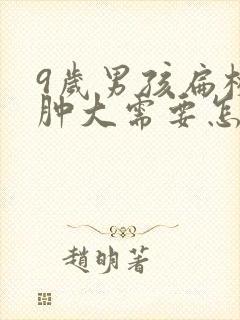 9歲男孩扁
肿大需要怎
趙明著